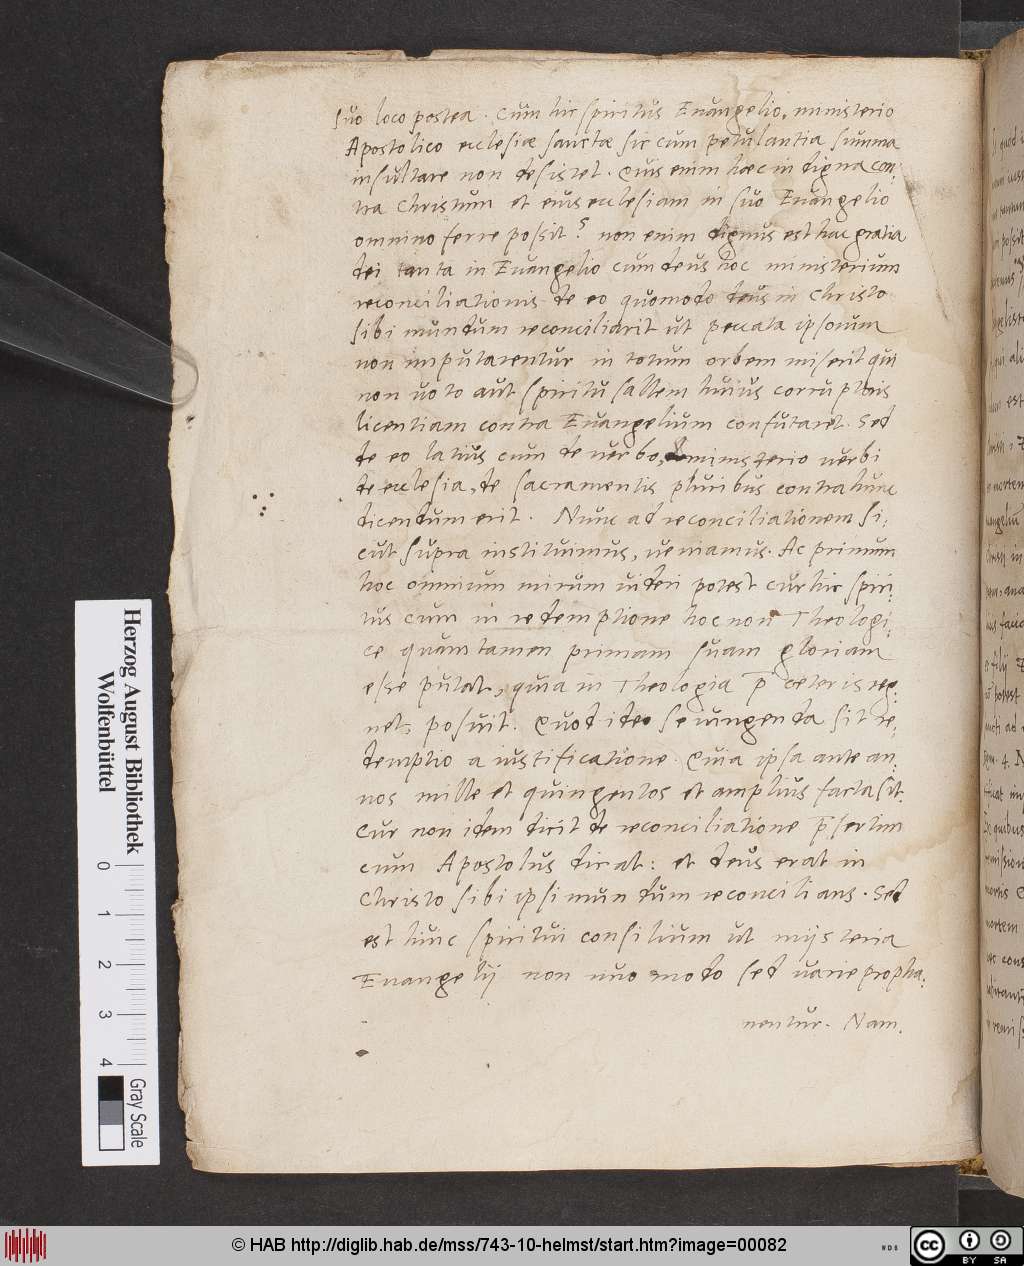 suo loco postea. Cum hic spiritus Euangelio, ministerio
Apostolico ecclesiæ sanctæ sic cum petulantia summa
insultare non desistet. Quis enim hæc indigna con-
tra Christum et eius ecclesiam in suo Euangelio
omnino ferre possit? non enim dignus est hac gratia
dei tanta in Euangelio cum deus hoc ministerium
reconciliationis de eo quomodo deus in Christo
sibi mundum reconciliarit ut peccata ipsorum
non imputarentur in totum orbem miserit qui
non uoto aut spiritu saltem huius corruptoris
licentiam contra Euangelium confutaret. Sed
de eo latius cum de uerbo, ministerio uerbi
de ecclesia, de sacramentis pluribus contra hunc
dicendum erit. Nunc ad reconciliationem si-
cut supra instituimus, ueniamus. Ac primum
hoc omnium mirum uideri potest cur hic spiri-
tus cum in redemptione hoc non Theologi-
ce quam tamen primam suam gloriam
esse putat, quia in Theologia p̄ cæteris reg-
net, posuit. Quod ideo seiungenda sit re-
demptio a iustificatione. Quia ipsa ante an-
nos mille et quingentos et amplius facta sit.
Cur non idem dicit de reconciliatione p̄sertim
cum Apostolus dicat: et deus erat in
Christo sibi ipsi mundum reconcilians. Sed
est huic spiritui consilium ut mijsteria
Euangelij non uno modo sed uarie propha-
nentur. Nam.
Herzog August Bibliothek
Wolfenbüttel
0 1 2 3 4
Gray Scale
© HAB http://diglib.hab.de/mss/743-10-helmst/start.htm?image=00082
cc BY SA